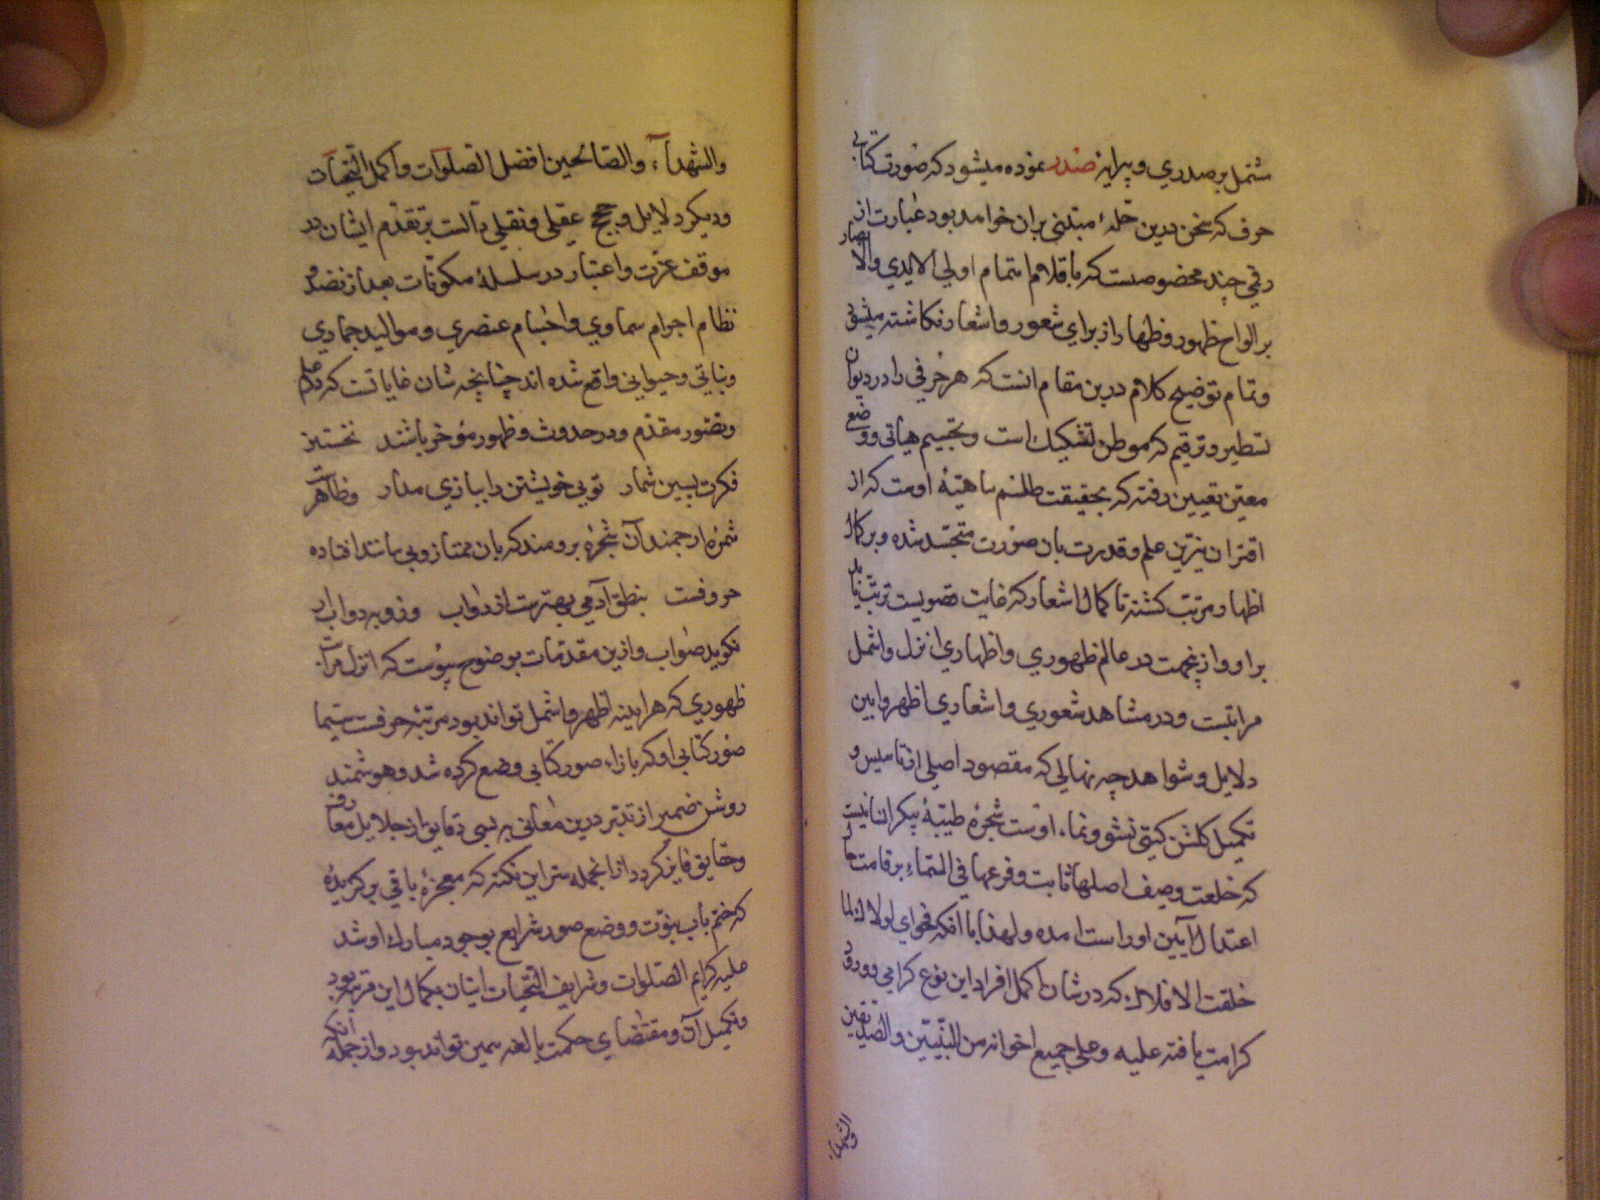 مشتمل بر صدری و پیرایه صدر نموده میشود که صورت کتابی
حرف که سخن درین حله مبتنی بران خواهد بود عبارت از
رقمی چند مخصوصست که باقلام اهتمام اولی الایدی والابصار
بر الواح ظهور و ظهار از برای شعور و اشعار نگاشته میشود
و تمام توضیح کلام درین مقام انست که هر حرفی را در دیوان
تسطیر و ترقیم که موطن تشکیل است و تجسیم هیاتی و وضعی
معین تعیین رفته که بحقیقت طلسم ماهیته اوست که از
اقتران نیرین علم و قدرت بان صورت متجسد شده و بر کمال
اظهار مرتب کشته تا کمال اشعار که غایت قصویست ترتب یابد
بر او و ازینجهت در عالم ظهوری و اظهاری انزل و اشمل
مراتبست و در مشاهد شعوری و اشعاری اظهر و ابین
دلایل و شواهد چه نهالی که مقصود اصلی از تاسیس و
تکمیل کلشن کیتی نشو و نماء اوست شجره طیبه پیکر انسانیست
که خلعت وصف اصلها ثابت و فرعها فی السماء بر قامت
اعتدال آیین او راست امده و لهذا فحوای لولاک لما
خلقت الافلاک که در شان اکمل افراد این نوع کرامی ورود
کرامت یافته علیه و علی جمیع اخوانه من النبیین والصدیقین
والشهداء
والشهداء والصالحین افضل الصلوات واکمل التحیات
و دیکر دلایل و حجج عقلی و نقلی دالست بر تقدم ایشان در
موقف عزت و اعتبار در سلسله مکونات بعد از نضد و
نظام اجرام سماوی و اجسام عنصری و موالید جمادی
و نباتی و حیوانی واقع شده اند چنانچه شان غایاتست که در علم
و تصور مقدم و در حدوث و ظهور موخر باشند نخستین
فکرت پسین شمار تویی خویشتن را ببازی مدار و ظاهرست
ثمره ارجمند آن شجره برومند که بان ممتاز و بی مانند افتاده
حروفست بنطق آدمی بهترست از دواب و زو به دواب ار
نکوید صواب و ازین مقدمات بوضوح پیوست که انزل مراتب
ظهوری که هراینه اظهر و اشمل تواند بود مرتبه حرفست سیما
صور کتابی او که بازاء صور کتابی وضع کرده شد و هوشمند
روشن ضمیر از تدبر درین معانی به بسی دقایق از جلایل معارف
و حقایق فایز کردد از انجمله سر این نکته که معجزه باقی برکزیده
که ختم باب نبوت و وضع صور شرایع بوجود مبارک او شد
علیه کرایم الصلوات و شرایف التحیات اتیان بکمال این مرتبه بود
و تکمیل آن و مقتضای حکمت بالغه همین تواند بود و از جمله آنکه